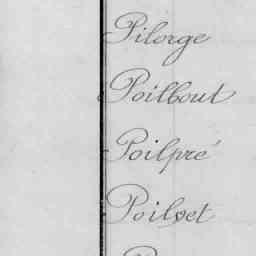 Pilorge
Poilbout
Poilpré
Poilvet